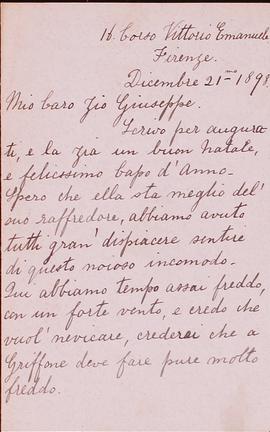 16. Corso Vittorio Emanuele
Firenze.
Dicembre 21mo 189
Mio Caro Zio Giuseppe.
Scrivo per augura
ti, e la Zia un buon Natale,
e felicissimo Capo d'Anno.
Spero che ella sta meglio del'
suo raffredore, abbiamo avuto
tutti gran' dispiacere sentire
di questo noioso incomodo.
Qui abbiamo tempo assai freddo,
con un forte vento, e credo che
vuol' nevicare, crederei che a
Griffone deve fare pure molto
freddo.